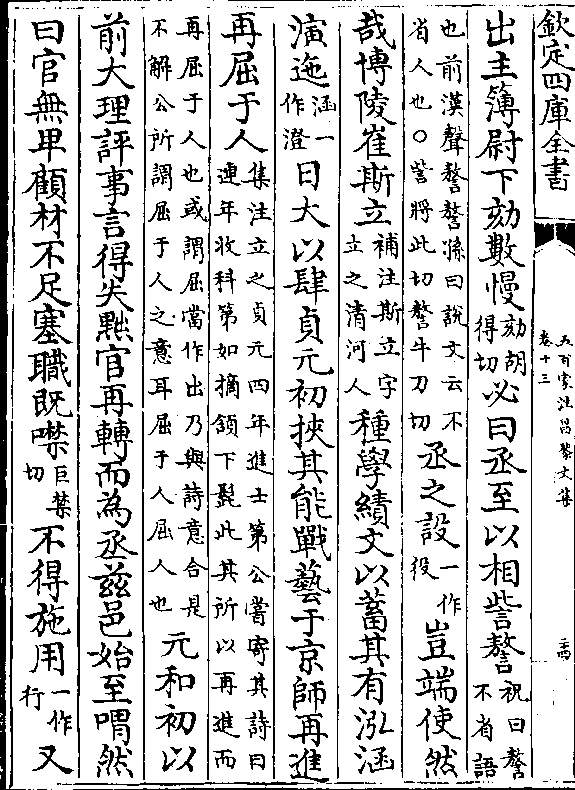 欽定四庫全書
五百家注昌黎文集
卷十三
二十四
出主簿尉下劾數慢劾胡得切必曰丞至以相訾謷祝曰謷不省語
也前漢聲謷謷孫曰說文云不省人也〇訾將此切謷牛刀切丞之設一作役豈端使然
哉博陵崔斯立補注斯立字立之清河人種學績文以蓄其有泓涵
演迤涵一作澄日大以肆貞元初挾其能戰藝于京師再進
再屈于人集注立之貞元四年進士第公嘗寄其詩曰連年收科第如摘頷下髭此其所以再進而
再屈于人也或謂屈當作出乃與詩意合是不解公所謂屈于人之意耳屈于人屈人也元和初以
前大理評事言得失黜官再轉而為丞茲邑始至喟然
曰官無卑顧材不足塞職既噤巨禁切不得施用一作行又